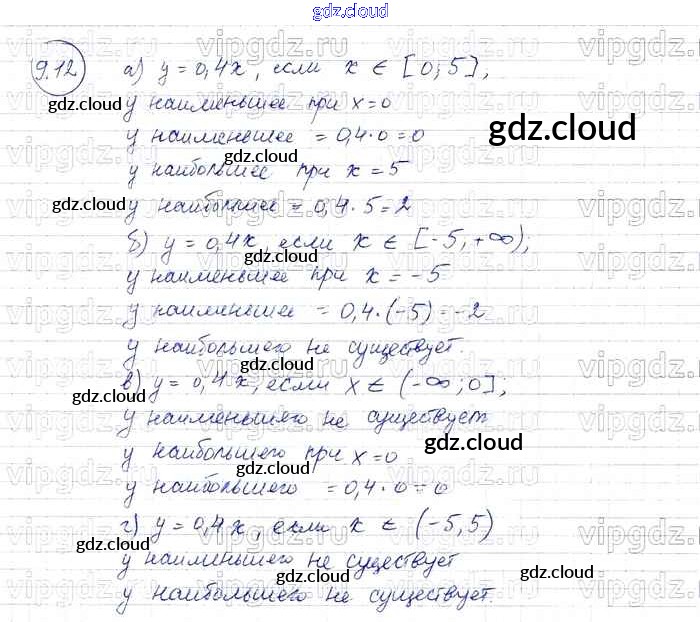 gdz.cloud
9.12 а) y = 0,4x, если x ∈ [0; 5],
gdz.cloud
y наименьшее при x = 0
y наименьшее = 0,4 · 0 = 0
gdz.cloud
gdz.cloud
y наибольшее при x = 5
y наибольшее = 0,4 · 5 = 2
gdz.cloud
б) y = 0,4x, если x ∈ [-5, +∞),
gdz.cloud
y наименьшее при x = -5
y наименьшее = 0,4 · (-5) = -2
y наибольшего не существует.
gdz.cloud
в) y = 0,4x, если x ∈ (-∞; 0];
gdz.cloud
y наименьшего не существует
gdz.cloud
y наибольшего при x = 0
gdz.cloud
y наибольшего = 0,4 · 0 = 0
г) y = 0,4x, если x ∈ (-5, 5)
gdz.cloud
y наименьшего не существует
gdz.cloud
gdz.cloud
y наибольшего не существует.